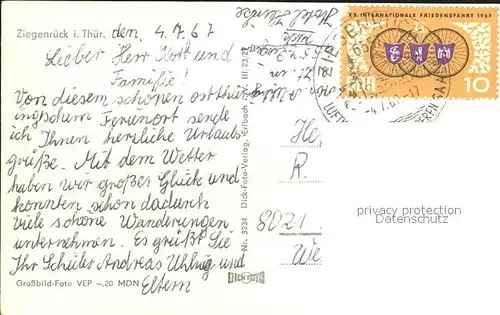 Ziegenrück i. Thür. den, 4.7.67
Lieber Herr Kort und
Familie!
Von diesem schönen ostthür
ingschem Ferienort sende
ich Ihnen herzliche Urlaubs
grüße. Mit dem Wetter
haben wir großes Glück und
konnten schon dadurch
viele schöne Wanderungen
unternehmen. Es grüßt Sie
Ihr Schüler Andreas Uhlig und
Eltern
Großbild-Foto VEP -,20 MDN
Nr. 3234 Dick-Foto-Verlag, Erlbach
III 23
DICK-FOTO
XX. INTERNATIONALE FRIEDENSFAHRT 1967
DDR
10
-4.7.67-17
LUFT
He
R.
8021
We
privacy protection
Datenschutz